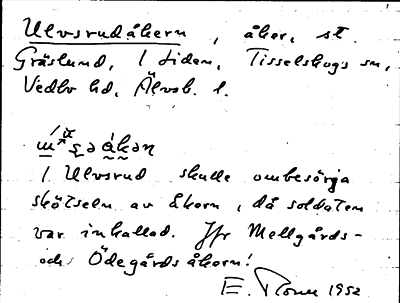 Ulvsrudåkern, åker, st.
Gräslund, 1 Liden, Tisselskogs sn,
Vedbo hd, Älvsb. l.
1 Ulvsrud skulle ombesörja
skötseln av åkern, då soldaten
var inkallad. Jfr Mellgårds-
och Ödegårdsåkern!
E. 1952